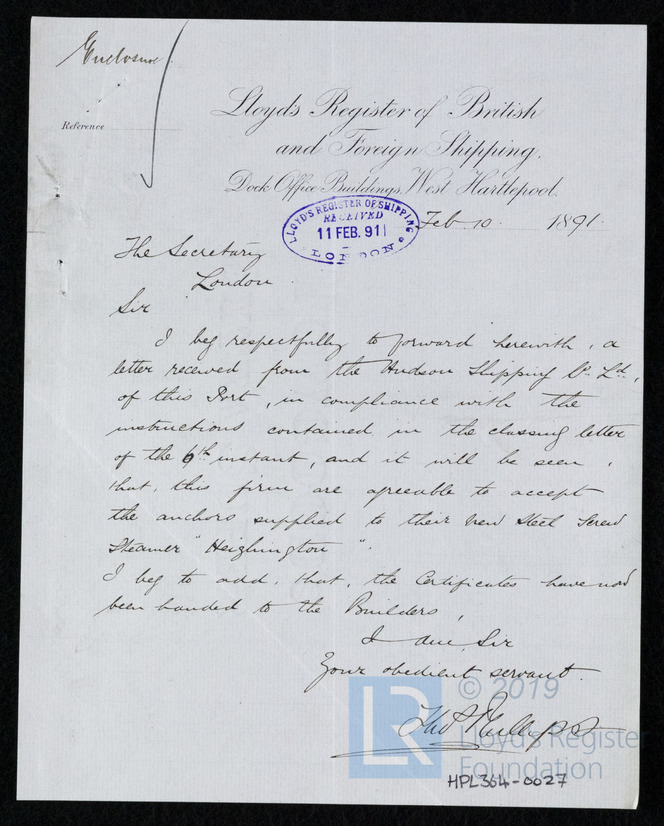 Enclosure
Reference
Lloyd's Register of British
and Foreign Shipping.
Dock Office Buildings, West Hartlepool.
Feb 10 1891
LLOYD'S REGISTER OF SHIPPING
RECEIVED
11 FEB. 91
LONDON
The Secretary
London
Sir
I beg respectfully to forward herewith, a
letter received from the Hudson Shipping Co. Ld.,
of this Port, in compliance with the
instructions contained in the classing letter
of the 6th instant, and it will be seen,
that, this firm are agreeable to accept
the anchors supplied to their new Steel Screw
Steamer "Heighington".
I beg to add, that, the Certificates have now
been handed to the Builders,
I am, Sir
Your obedient servant.
Thos Phillips
© 2019
LR
Lloyd's Register
Foundation
HPL364-0027